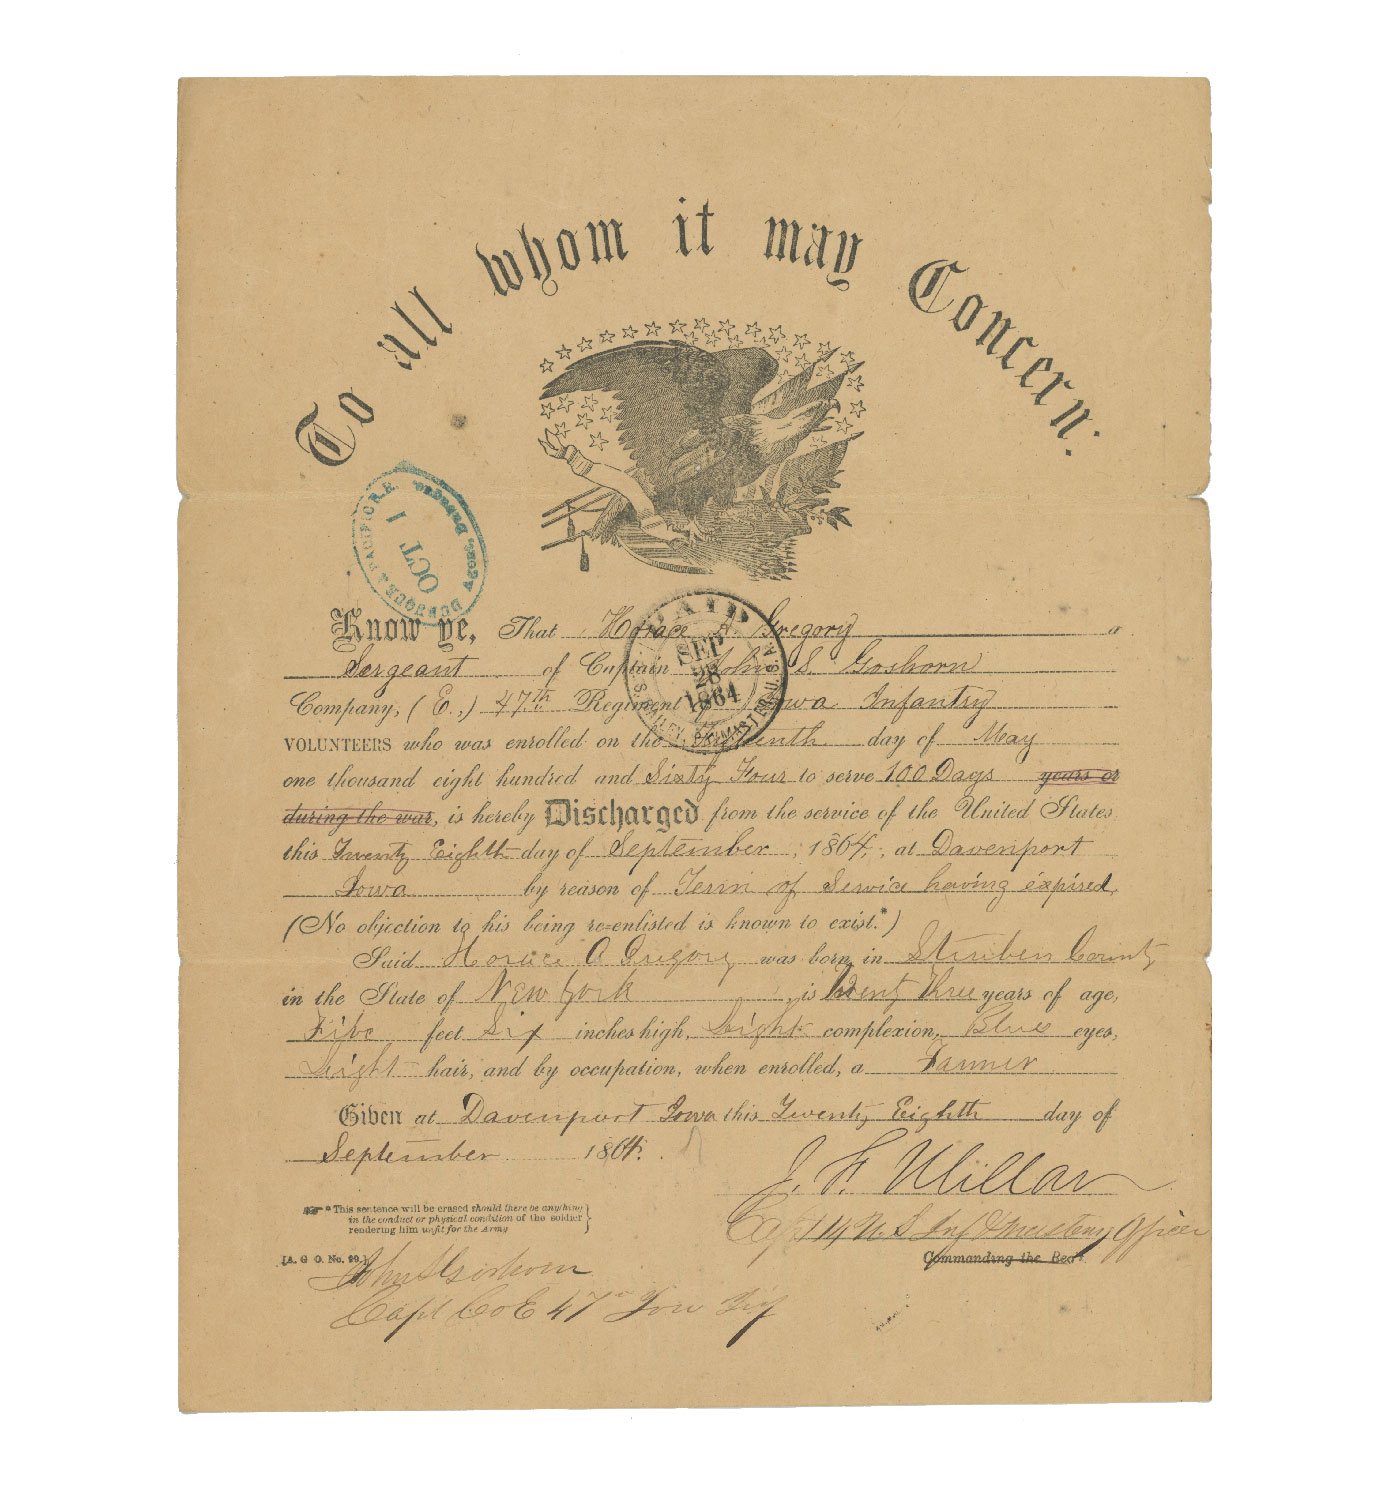 To all whom it may Concern:
DUBUQUE & PACIFIC R.R.
OCT 1
Dubuque
Know ye, That Horace A. Gregory a
Sergeant of Captain John S. Goshorn
Company, (E.,) 47th Regiment of Iowa Infantry
VOLUNTEERS who was enrolled on the day of May
one thousand eight hundred and Sixty Four to serve 100 Days years or
during the war, is hereby Discharged from the service of the United States
this Twenty Eighth day of September, 1864, at Davenport
Iowa by reason of Term of Service having expired,
(No objection to his being re-enlisted is known to exist.*)
Said Horace A Gregory was born in Steuben County
in the State of New York, is Twenty Three years of age,
Five feet Six inches high, Light complexion, Blue eyes,
Light hair, and by occupation, when enrolled, a Farmer
Given at Davenport Iowa this Twenty Eighth day of
September 1864.
PAID
SEP
28
1864
PAYMASTER U.S.A.
J. F. Millar
Capt 14 U. S Inf & Mustering Officer
Commanding the Reg't
* This sentence will be erased should there be anything
in the conduct or physical condition of the soldier
rendering him unfit for the Army
[A. G O. No. 99.]
John S Goshorn
Capt Co E 47th Iow Inf